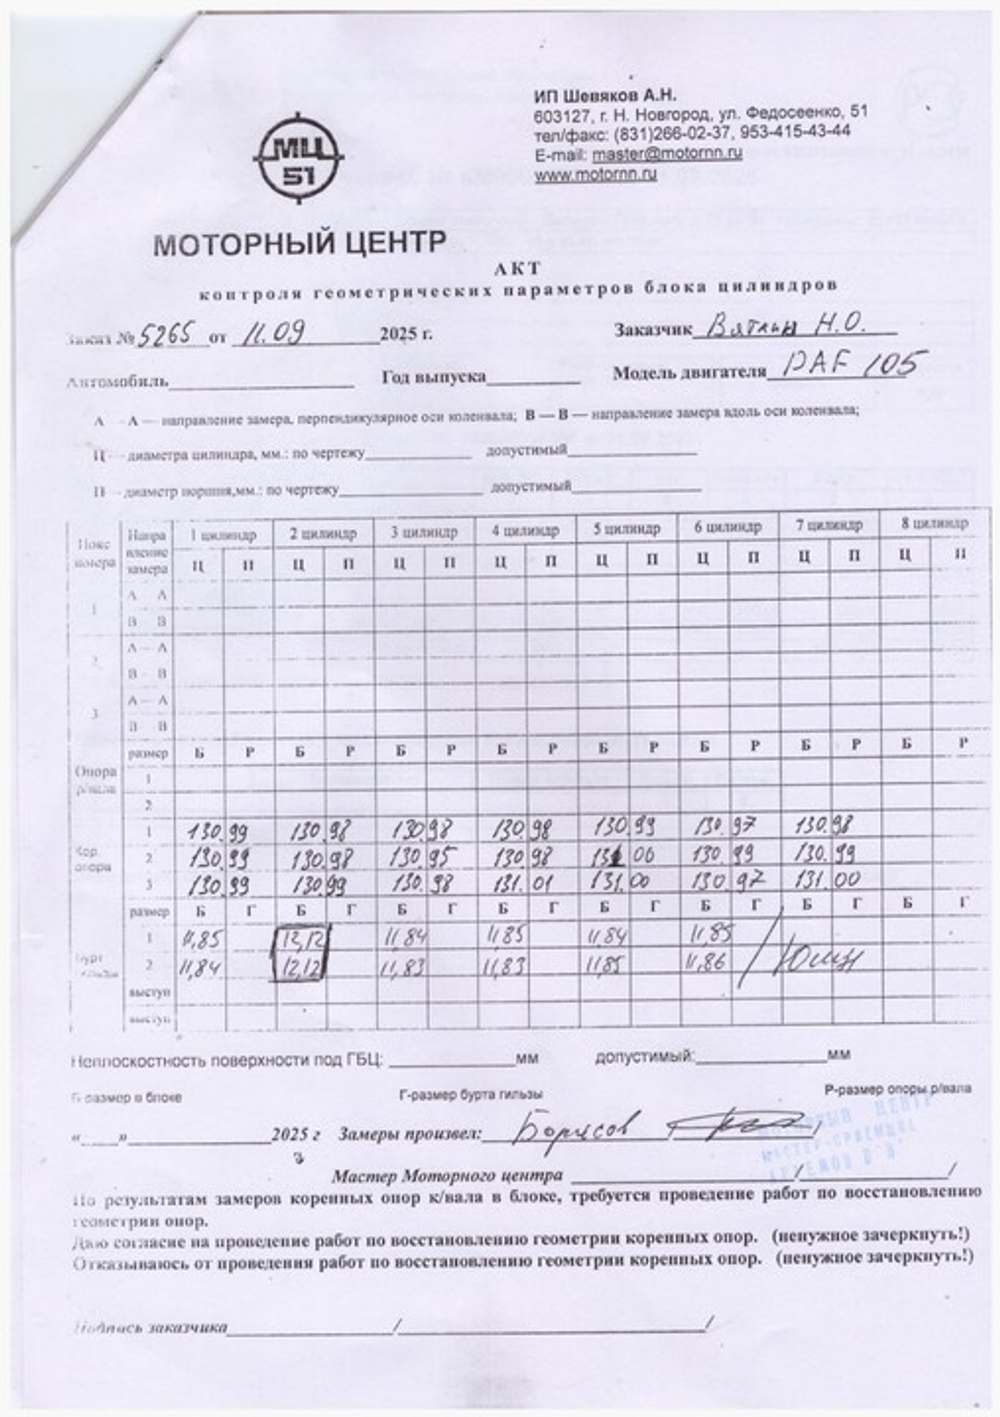 ИП Шевяков А.Н.
603127, г. Н. Новгород, ул. Федосеенко, 51
тел/факс: (831)266-02-37, 953-415-43-44
E-mail: master@motornn.ru
www.motornn.ru
МЦ
51
МОТОРНЫЙ ЦЕНТР
АКТ
контроля геометрических параметров блока цилиндров
Заказ № 5265 от 11.09 2025 г. Заказчик Вяткин Н.О.
Автомобиль Год выпуска Модель двигателя DAF 105
А – А — направление замера, перпендикулярное оси коленвала; В — В — направление замера вдоль оси коленвала;
Ц — диаметра цилиндра, мм.: по чертежу допустимый
П – диаметр поршня,мм.: по чертежу допустимый
Пояс замера Направление замера 1 цилиндр 2 цилиндр 3 цилиндр 4 цилиндр 5 цилиндр 6 цилиндр 7 цилиндр 8 цилиндр
Ц П Ц П Ц П Ц П Ц П Ц П Ц П Ц П
1 А А
В В
2 А — А
В – В
3 А — А
В – В
размер Б Р Б Р Б Р Б Р Б Р Б Р Б Р Б Р
Опора р/вала 1
2
Кор. опора 1 130.99 130.98 130.98 130.98 130.99 130.97 130.98
2 130.99 130.98 130.95 130.98 131.00 130.99 130.99
3 130.99 130.99 130.98 131.01 131.00 130.97 131.00
размер Б Г Б Г Б Г Б Г Б Г Б Г Б Г Б Г
Бурт гильзы 1 11,85 12,12 11,84 11,85 11,84 11,85
2 11,84 12,12 11,83 11,83 11,85 11,86
выступ
выступ
Неплоскостность поверхности под ГБЦ: мм допустимый: мм
Б размер в блоке Г-размер бурта гильзы Р-размер опоры р/вала
« » 2025 г Замеры произвел: Борисов
МОТОРНЫЙ ЦЕНТР
МАСТЕР-ПРИЕМЩИК
Мастер Моторного центра / /
По результатам замеров коренных опор к/вала в блоке, требуется проведение работ по восстановлению
геометрии опор.
Даю согласие на проведение работ по восстановлению геометрии коренных опор. (ненужное зачеркнуть!)
Отказываюсь от проведения работ по восстановлению геометрии коренных опор. (ненужное зачеркнуть!)
Подпись заказчика / /